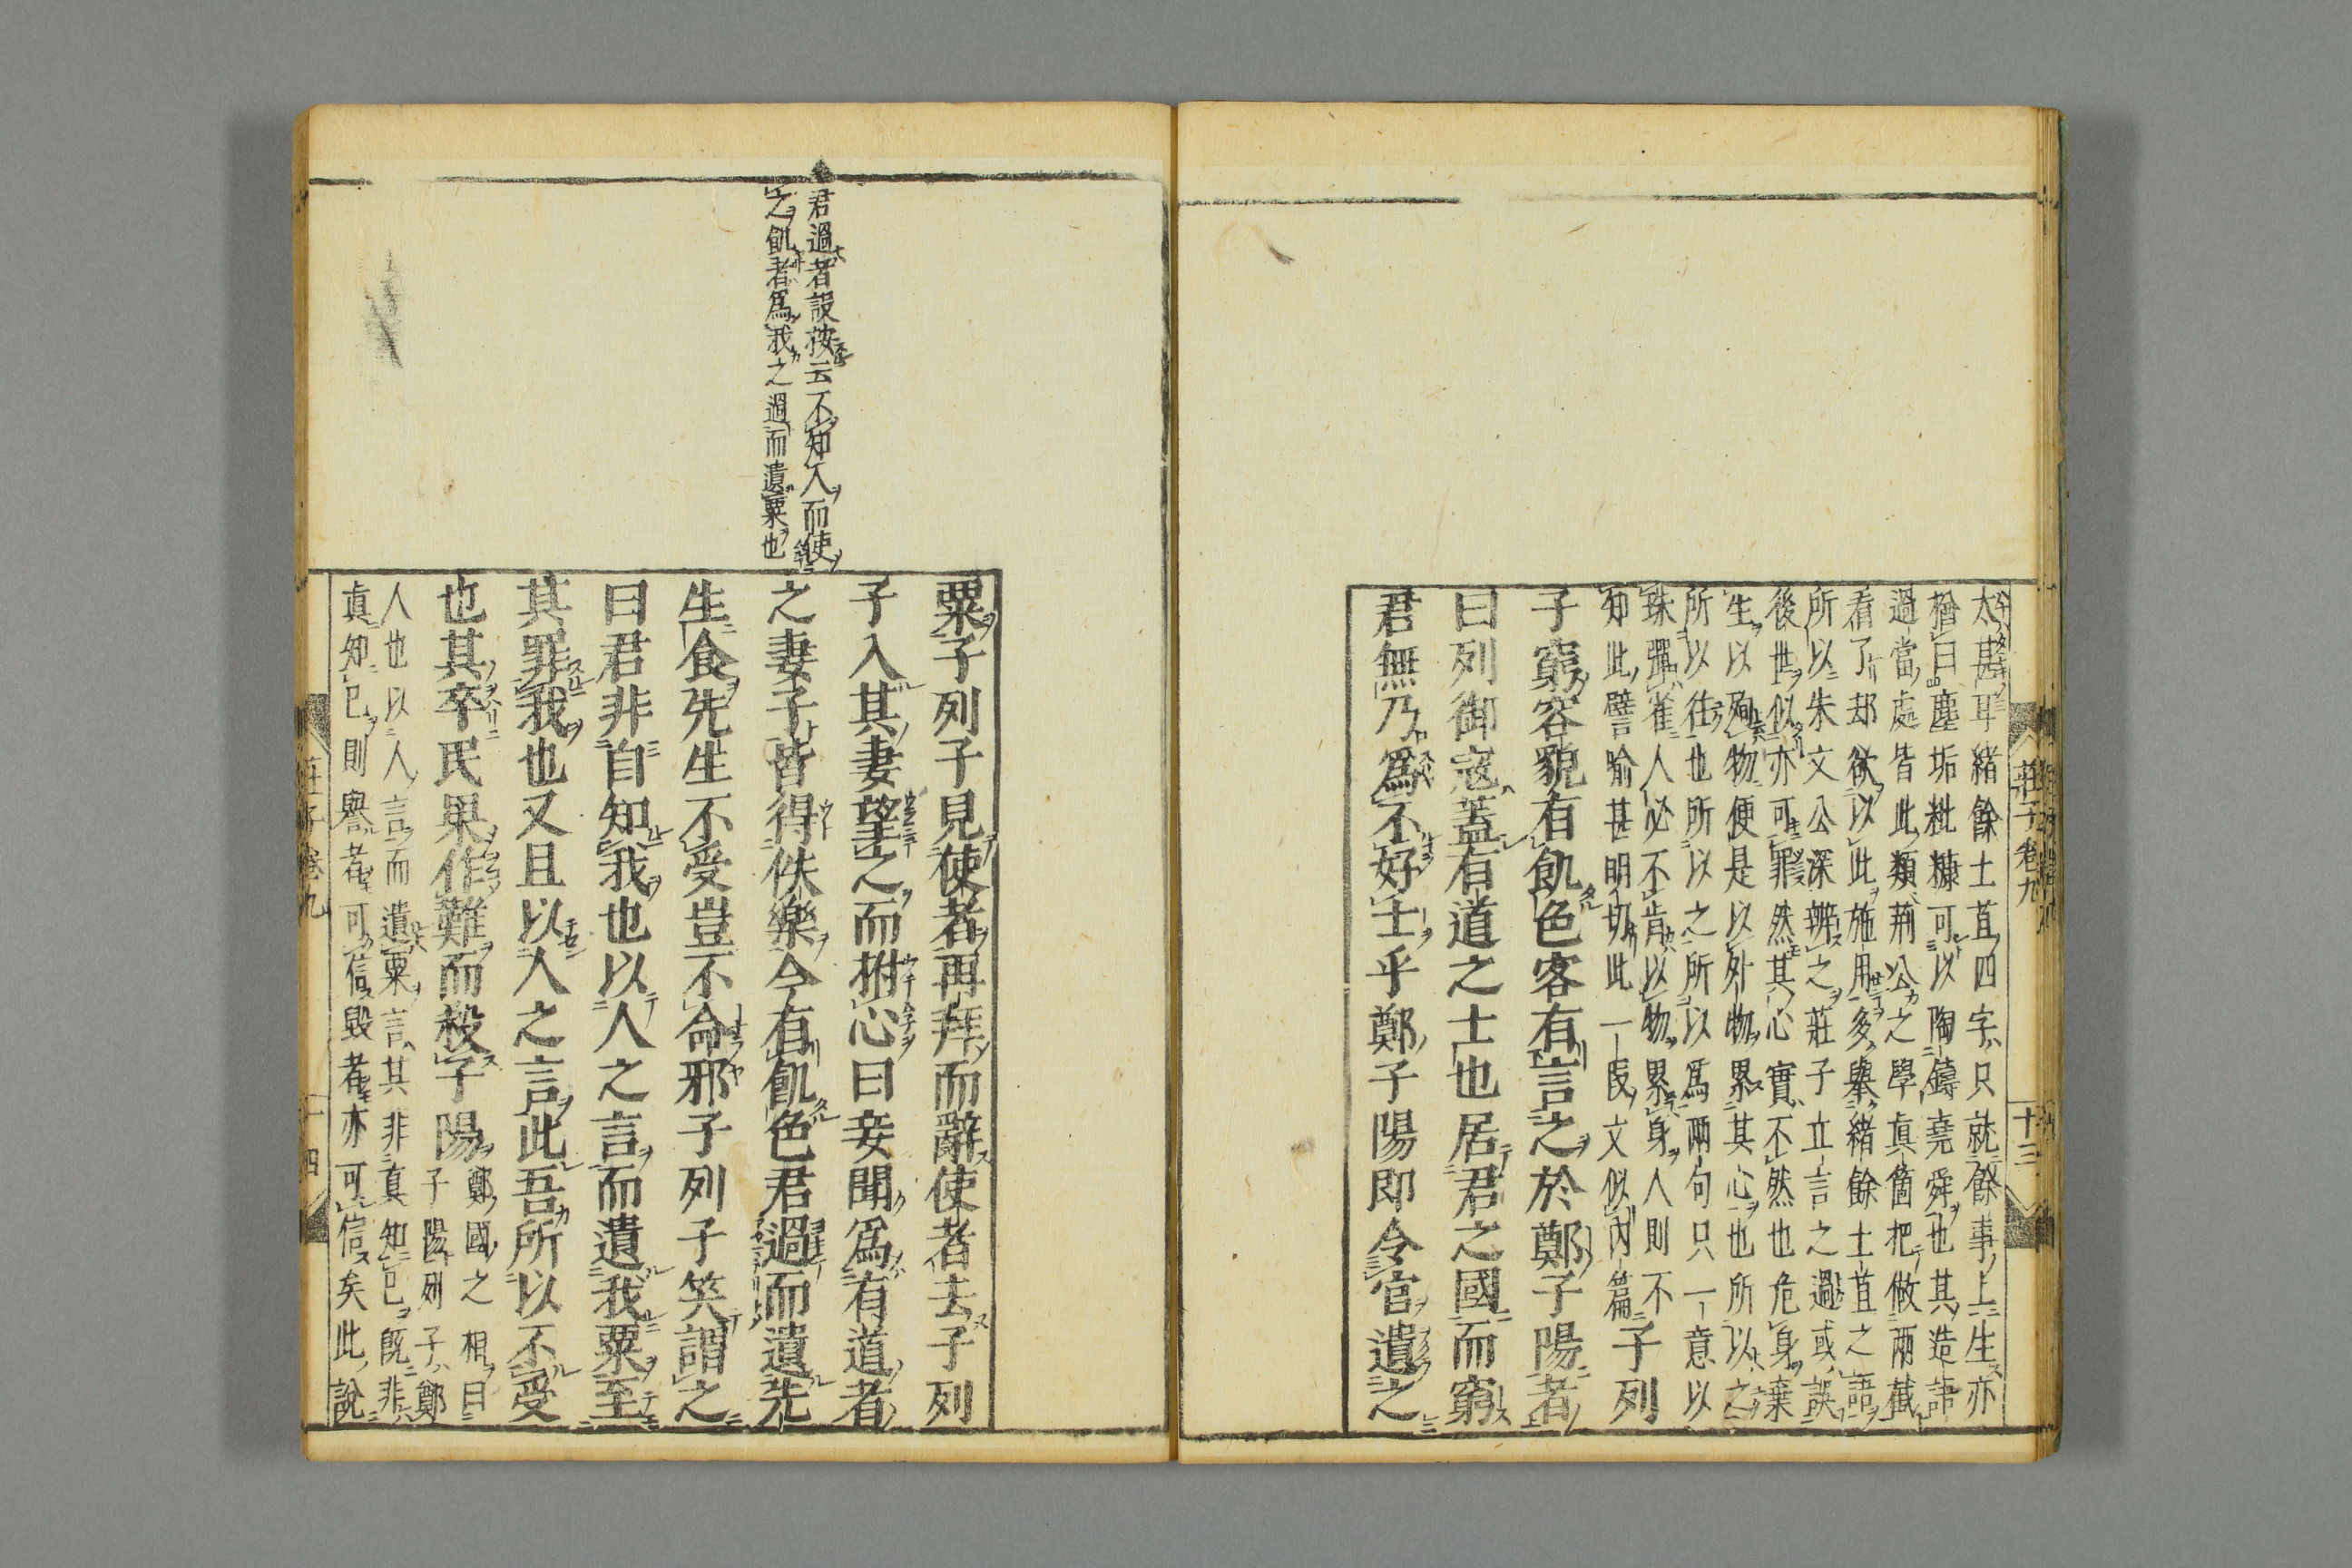 太甚耳緒餘土苴四字只就餘事上生亦
猶曰塵垢粃糠可以陶鑄堯舜也其造語
過當處皆此類荊公之學真箇把做兩截
看了却欲以此施用多舉緒餘土苴之語
所以朱文公深辨之莊子立言之過或誤
後世似亦可罪然其心實不然也危身棄
生以殉物便是以外物累其心也所以之
所以往也所以之所以為兩句只一意以
珠彈雀人必不肯以物累身人則不
知此譬喻甚明切此一段文似內篇
子列
子窮容貌有飢色客有言之於鄭子陽者
曰列御寇蓋有道之士也居君之國而窮
君無乃爲不好士乎鄭子陽即令官遺之
莊子卷九
十三
君過者設按云不知人而使
之飢者爲我之過而遺粟也
粟子列子見使者再拜而辭使者去子列
子入其妻望之而拊心曰妾聞爲有道者
之妻子皆得佚樂今有飢色君過而遺先
生食先生不受豈不命邪子列子笑謂之
曰君非自知我也以人之言而遺我粟至
其罪我也又且以人之言此吾所以不受
也其卒民果作難而殺子陽
鄭國之相曰
子陽列子鄭
人也以人言而遺粟言其非真知已既非
真知已則譽者可信毀者亦可信矣此說
莊子卷九
十四